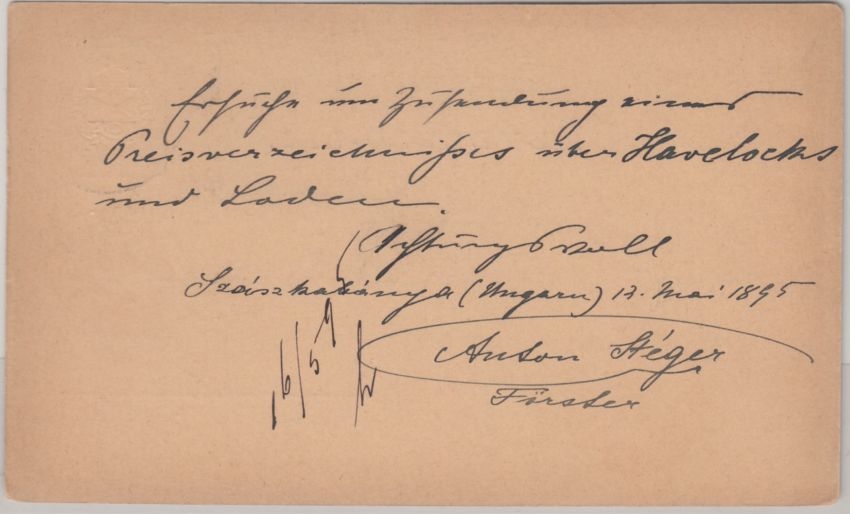 Ersuche um Zusendung eines
Preisverzeichnißes über Havelocks
und Loden.
Achtungsvoll
Szászkabánya (Ungarn) 13. Mai 1895
Anton Stéger
Förster
16/5 95